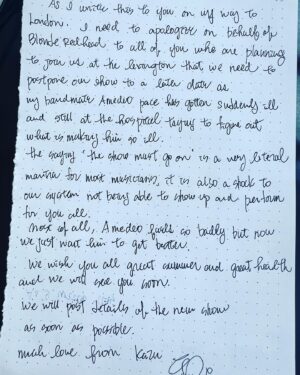 As I write this to you on my way to
London. I need to apologize on behalf of
Blonde Redhead to all of you who are planning
to join us at the Levington that we need to
postpone our show to a later date as
my bandmate Amedeo pace has gotten suddenly ill
and still at the hospital trying to figure out
what is making him so ill.
the saying "the show must go on" is a very literal
mantra for most musicians, it is also a shock to
our system not being able to show up and perform
for you all.
most of all, Amedeo feels so badly but now
we just want him to get better.
We wish you all great summer and great health
and we will see you soon.
We will post details of the new show
as soon as possible.
much love from Kazu